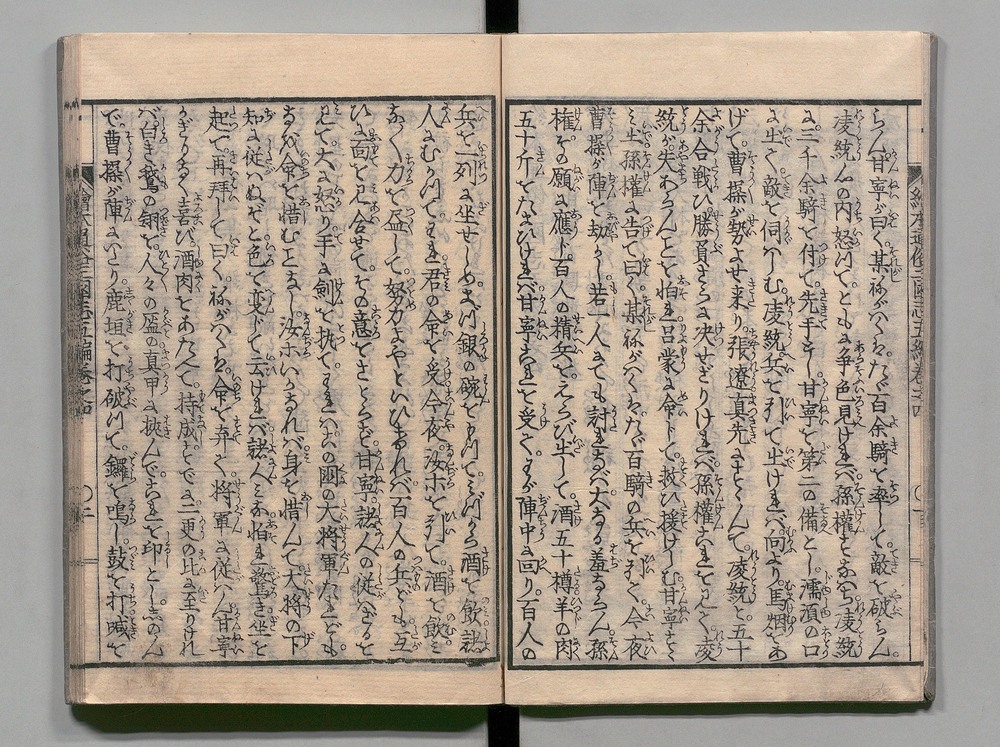 らん甘寧が曰く某ねがハくハたゞ百余騎を率して敵を破らん
凌統心の内怒つてともに争ふ色見けれバ孫權すなハち凌統
に三千余騎を付て先手とし甘寧を第二の備とし濡須の口
に出て敵を伺ハしむ凌統兵を引て出けれバ向より馬烟をあ
げて曹操が勢よせ来り張遼真先にすゝんで凌統と五十
余合戦ひ勝負さらに決せざりけれバ孫權これを見て凌
統が失あらんことを怕れ呂蒙に命じて救ひ援けしむ甘寧すゝ
ミ出孫權に告て曰く某ねがハくハたゞ百騎の兵を引て今夜
曹操が陣を劫かし若一人にても討るれバ大なる羞ならん孫
權その願に應じ百人の精兵をえらび出して酒五十樽羊の肉
五十斤をたまひけれバ甘寧これを受てわが陣中に回り百人の
兵を一列に坐せしめまづ銀の碗をもつてミづから酒を飲諸
人にむかつてわれ君の命を受今夜汝ホを引て酒を飲ミ
おハつて力を盡して努力よやといひければ百人の兵ども互
ひに面を見合せてその意をさとらず甘寧諸人の従ハざるを
見て大に怒り手に劔を執てわれハこれ國の大将軍たれども
なほ命を惜むことなし汝ホいかなれバ身を惜んで大将の下
知に従ハぬぞと色を変じて云けれバ諸人ミな怕れ驚き坐を
起て再拝して曰くねがハくハ命を弃て将軍に従ハん甘寧
かぎりなく喜び酒肉をあたへて持成すでに二更の比に至りけれ
バ白き鵞の翎を人々の盔の真甲に挾んでこれを印とし忍のん
で曹操が陣にいたり鹿垣を打破つて鑼を鳴し鼓を打喊を